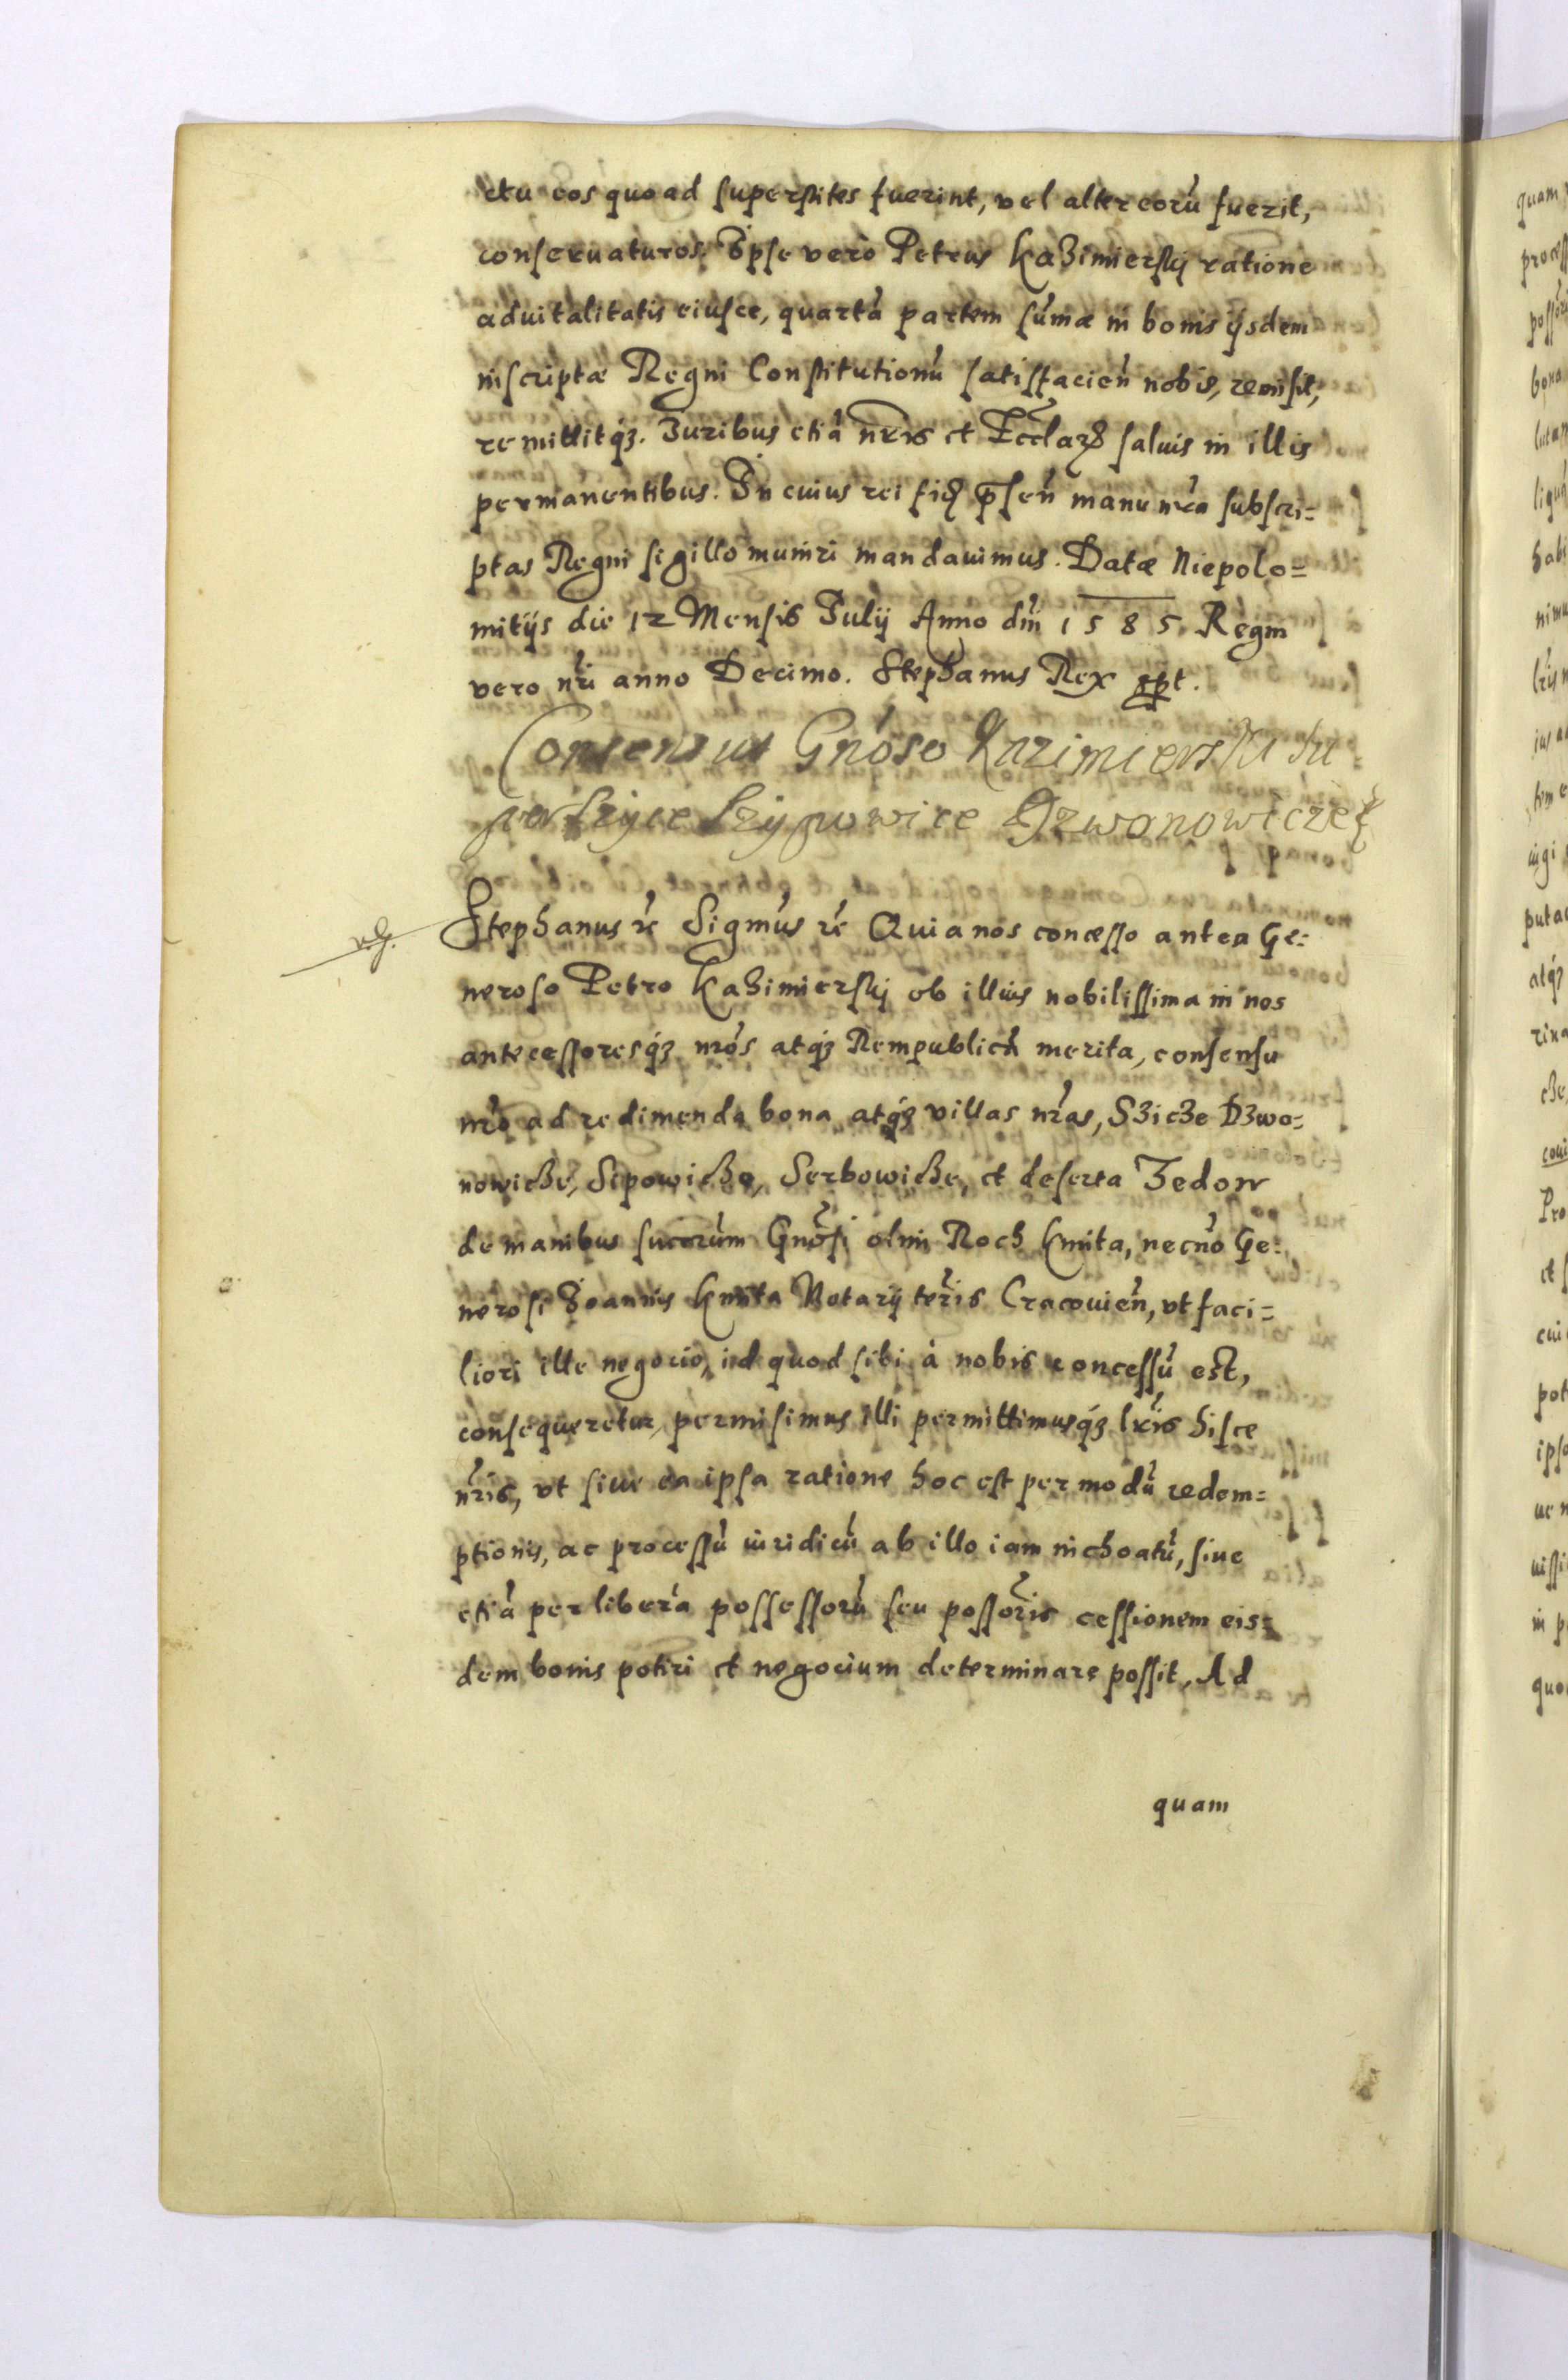 ctu eos quoad superstites fuerint, vel alter eorũ fuerit,
conseruaturos. Ipse vero Petrus Kazimierskij ratione
aduitalitatis eiusce, quartã partem sũmæ in bonis ijsdem
inscriptæ Regni Constitutionũ satisfacieñ nobis, remisit,
remittitqʒ. Iuribus etiã nr̃is et Eccl̃arꝝ saluis in illis
permanentibus. In cuius rei fidẽ p̃señ manu nr̃a subscri=
ptas Regni sigillo muniri mandauimus. Datæ Niepolo=
mitijs die 12 Mensis Iulij Anno dñi 1585. Regni
vero nr̃i anno Decimo. Stephanus Rex sspt.
Consensus Gnoso Kazimierski su=
per Szyce Szypowice Dzwonowicze
Stephanus rc̃ Sigmũs rc̃ Quia nos concesso antea Ge=
neroso Petro Kazimierskij ob illius nobilissima in nos
antecessoresqʒ nr̃os atqʒ Rempublicã merita, consensu
nr̃o ad redimenda bona atqʒ villas nr̃as, Szicze Dzwo=
nowicze, Sipowicze, Serbowicze, et deserta Zedow
de manibus succorũm Gnõsi olim Roch Kmita, necño Ge=
nerosi Ioannis Kmita Notarij terr̃is Cracouieñ, vt faci=
liori ille negocio, id quod sibi à nobis concessũ est,
consequeretur, permisimus illi permittimusqʒ lr̃is hisce
nr̃is, vt siue ea ipsa ratione hoc est per modũ redem=
ptionis, ac processũ iuridicũ ab illo iam inchoatũ, siue
etiã per liberã possessorũ seu possor̃is cessionem eis=
dem bonis potiri et negocium determinare possit, Ad
quam